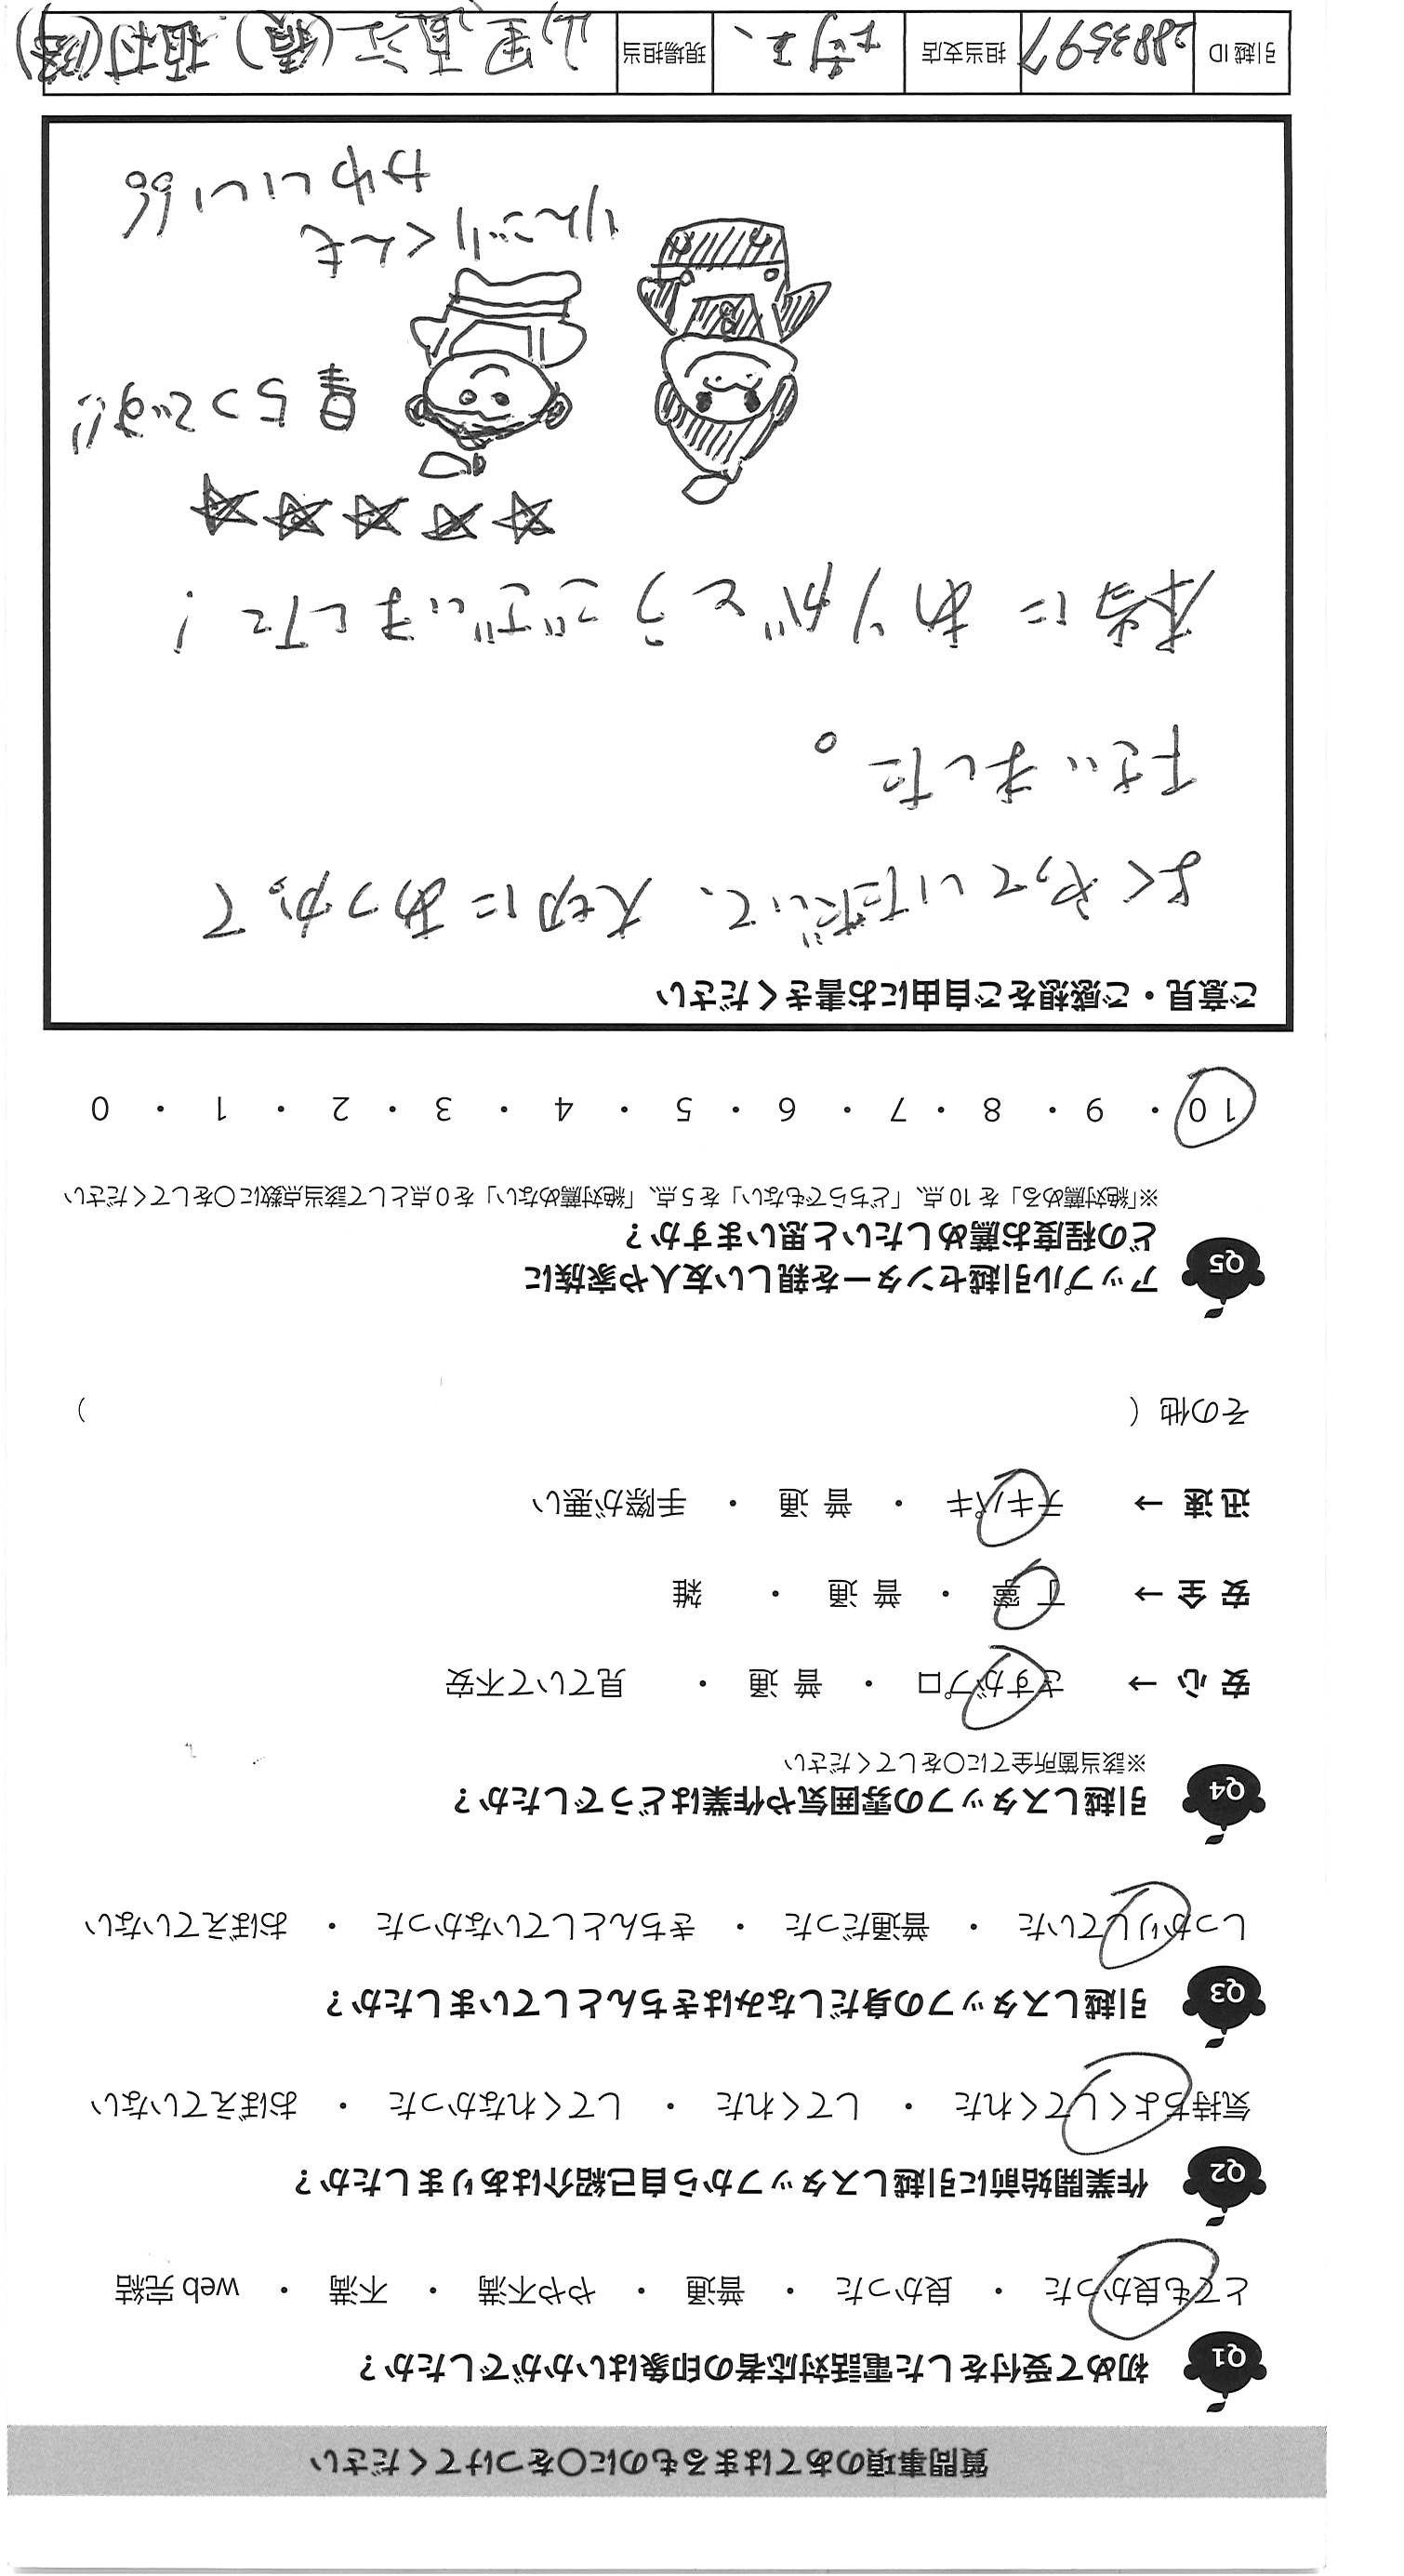 質問事項のあてはまるものに○をつけてください
Q1 初めて受付をした電話対応者の印象はいかがでしたか？
とても良かった ・ 良かった ・ 普通 ・ やや不満 ・ 不満 ・ web 完結
Q2 作業開始前に引越しスタッフから自己紹介はありましたか？
気持ちよくしてくれた ・ してくれた ・ してくれなかった ・ おぼえていない
Q3 引越しスタッフの身だしなみはきちんとしていましたか？
しっかりしていた ・ 普通だった ・ きちんとしていなかった ・ おぼえていない
Q4 引越しスタッフの雰囲気や作業はどうでしたか？
※該当箇所全てに○をしてください
安心 → さすがプロ ・ 普通 ・ 見ていて不安
安全 → 丁寧 ・ 普通 ・ 雑
迅速 → テキパキ ・ 普通 ・ 手際が悪い
その他（ ）
Q5 アップル引越センターを親しい友人や家族に
どの程度お薦めしたいと思いますか？
※「絶対薦める」を 10 点、「どちらでもない」を 5 点、「絶対薦めない」を 0 点として該当点数に○をしてください
10 ・ 9 ・ 8 ・ 7 ・ 6 ・ 5 ・ 4 ・ 3 ・ 2 ・ 1 ・ 0
ご意見・ご感想をご自由にお書きください
よくやっていただいて、大切にあつかって
下さいました。
本当にありがとうございました！
☆☆☆☆☆
星5つです!!
りんごりくんも
かわいい
引越 ID 2883597 担当支店 埼玉 現場担当